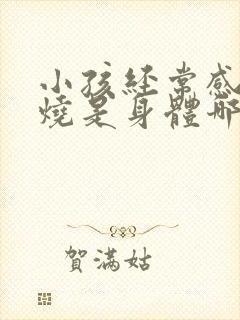 小孩經常感
燒是身體哪
賀滿姑